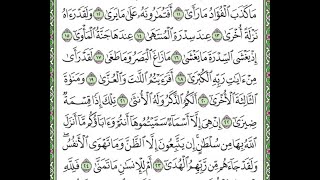 مَا كَذَبَ الْفُؤَادُ مَا رَأَىٰ ﴿١١﴾ أَفَتُمَارُونَهُ عَلَىٰ مَا يَرَىٰ ﴿١٢﴾ وَلَقَدْ رَآهُ
نَزْلَةً أُخْرَىٰ ﴿١٣﴾ عِندَ سِدْرَةِ الْمُنتَهَىٰ ﴿١٤﴾ عِندَهَا جَنَّةُ الْمَأْوَىٰ ﴿١٥﴾
إِذْ يَغْشَى السِّدْرَةَ مَا يَغْشَىٰ ﴿١٦﴾ مَا زَاغَ الْبَصَرُ وَمَا طَغَىٰ ﴿١٧﴾ لَقَدْ رَأَىٰ
مِنْ آيَاتِ رَبِّهِ الْكُبْرَىٰ ﴿١٨﴾ أَفَرَأَيْتُمُ اللَّاتَ وَالْعُزَّىٰ ﴿١٩﴾ وَمَنَاةَ
الثَّالِثَةَ الْأُخْرَىٰ ﴿٢٠﴾ أَلَكُمُ الذَّكَرُ وَلَهُ الْأُنثَىٰ ﴿٢١﴾ تِلْكَ إِذًا قِسْمَةٌ
ضِيزَىٰ ﴿٢٢﴾ إِنْ هِيَ إِلَّا أَسْمَاءٌ سَمَّيْتُمُوهَا أَنتُمْ وَآبَاؤُكُم مَّا أَنزَلَ
اللَّهُ بِهَا مِن سُلْطَانٍ ۚ إِن يَتَّبِعُونَ إِلَّا الظَّنَّ وَمَا تَهْوَى الْأَنفُسُ ۖ
وَلَقَدْ جَاءَهُم مِّن رَّبِّهِمُ الْهُدَىٰ ﴿٢٣﴾ أَمْ لِلْإِنسَانِ مَا تَمَنَّىٰ ﴿٢٤﴾ فَلِلَّهِ